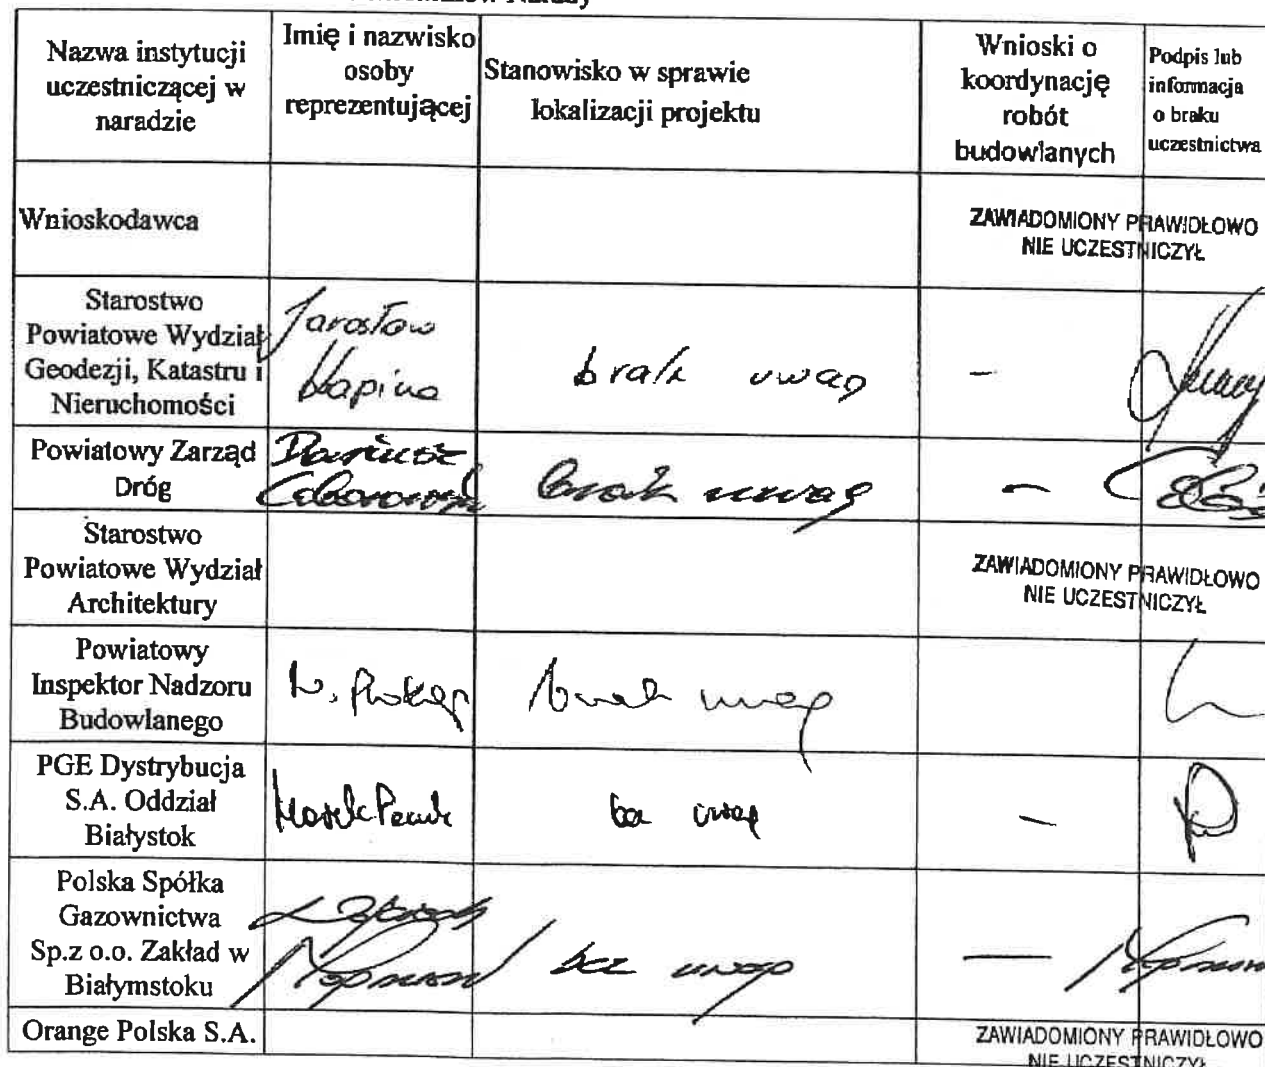 Narady
Nazwa instytucji
uczestniczącej w
naradzie
Imię i nazwisko
osoby
reprezentującej
Stanowisko w sprawie
lokalizacji projektu
Wnioski o
koordynację
robót
budowlanych
Podpis lub
informacja
o braku
uczestnictwa
Wnioskodawca
ZAWIADOMIONY PRAWIDŁOWO
NIE UCZESTNICZYŁ
Starostwo
Powiatowe Wydział
Geodezji, Katastru i
Nieruchomości
Jarosław
Kapica
brak uwag
-
Powiatowy Zarząd
Dróg
Dariusz
brak uwag
-
Starostwo
Powiatowe Wydział
Architektury
ZAWIADOMIONY PRAWIDŁOWO
NIE UCZESTNICZYŁ
Powiatowy
Inspektor Nadzoru
Budowlanego
brak uwag
PGE Dystrybucja
S.A. Oddział
Białystok
Marek
bez uwag
-
Polska Spółka
Gazownictwa
Sp.z o.o. Zakład w
Białymstoku
bez uwag
—
Orange Polska S.A.
ZAWIADOMIONY PRAWIDŁOWO
NIE UCZESTNICZYŁ